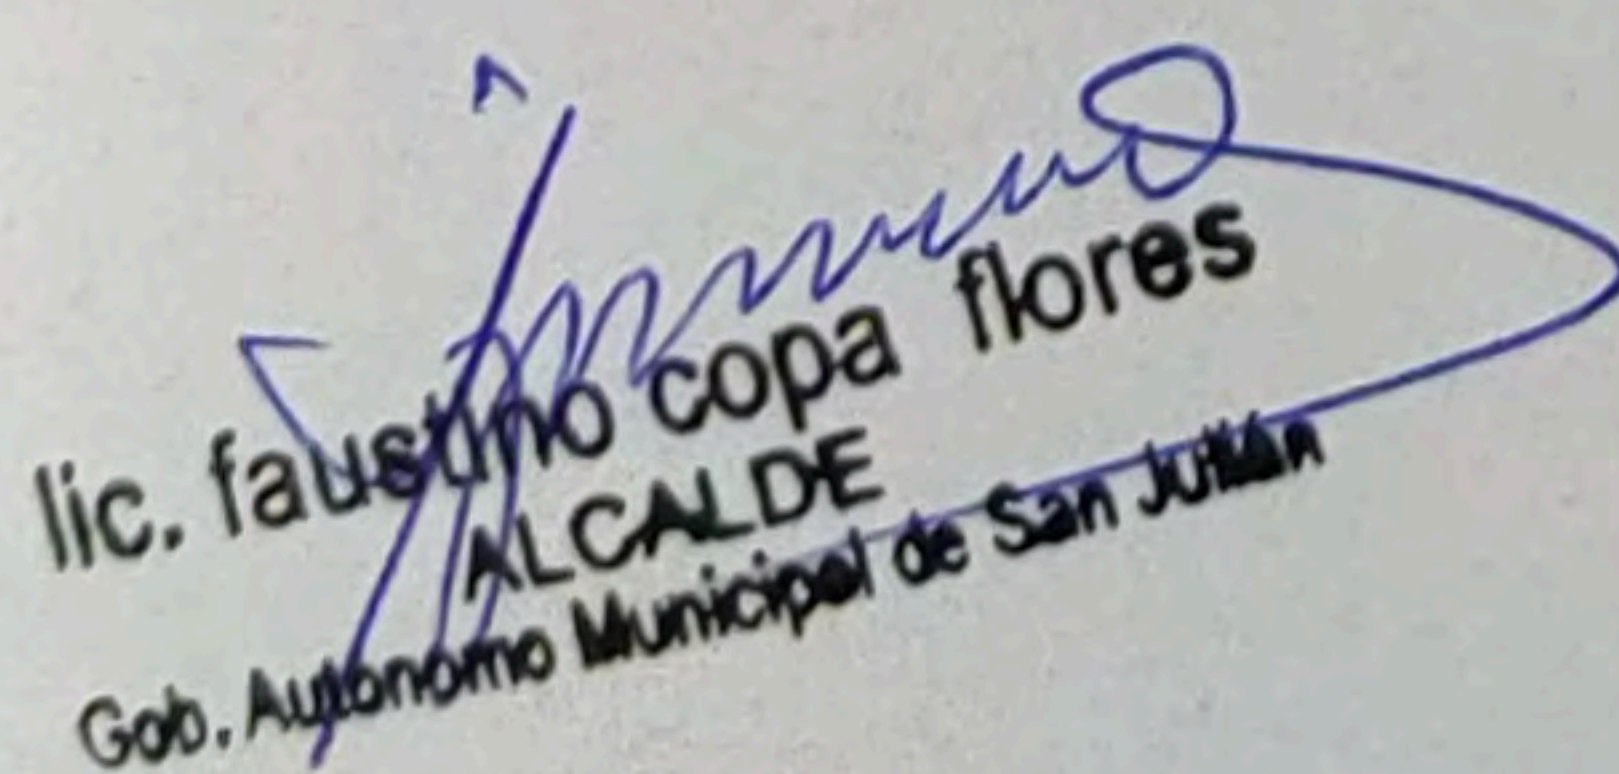 lic. faustino copa flores
ALCALDE
Gob. Autonomo Municipal de San Julián